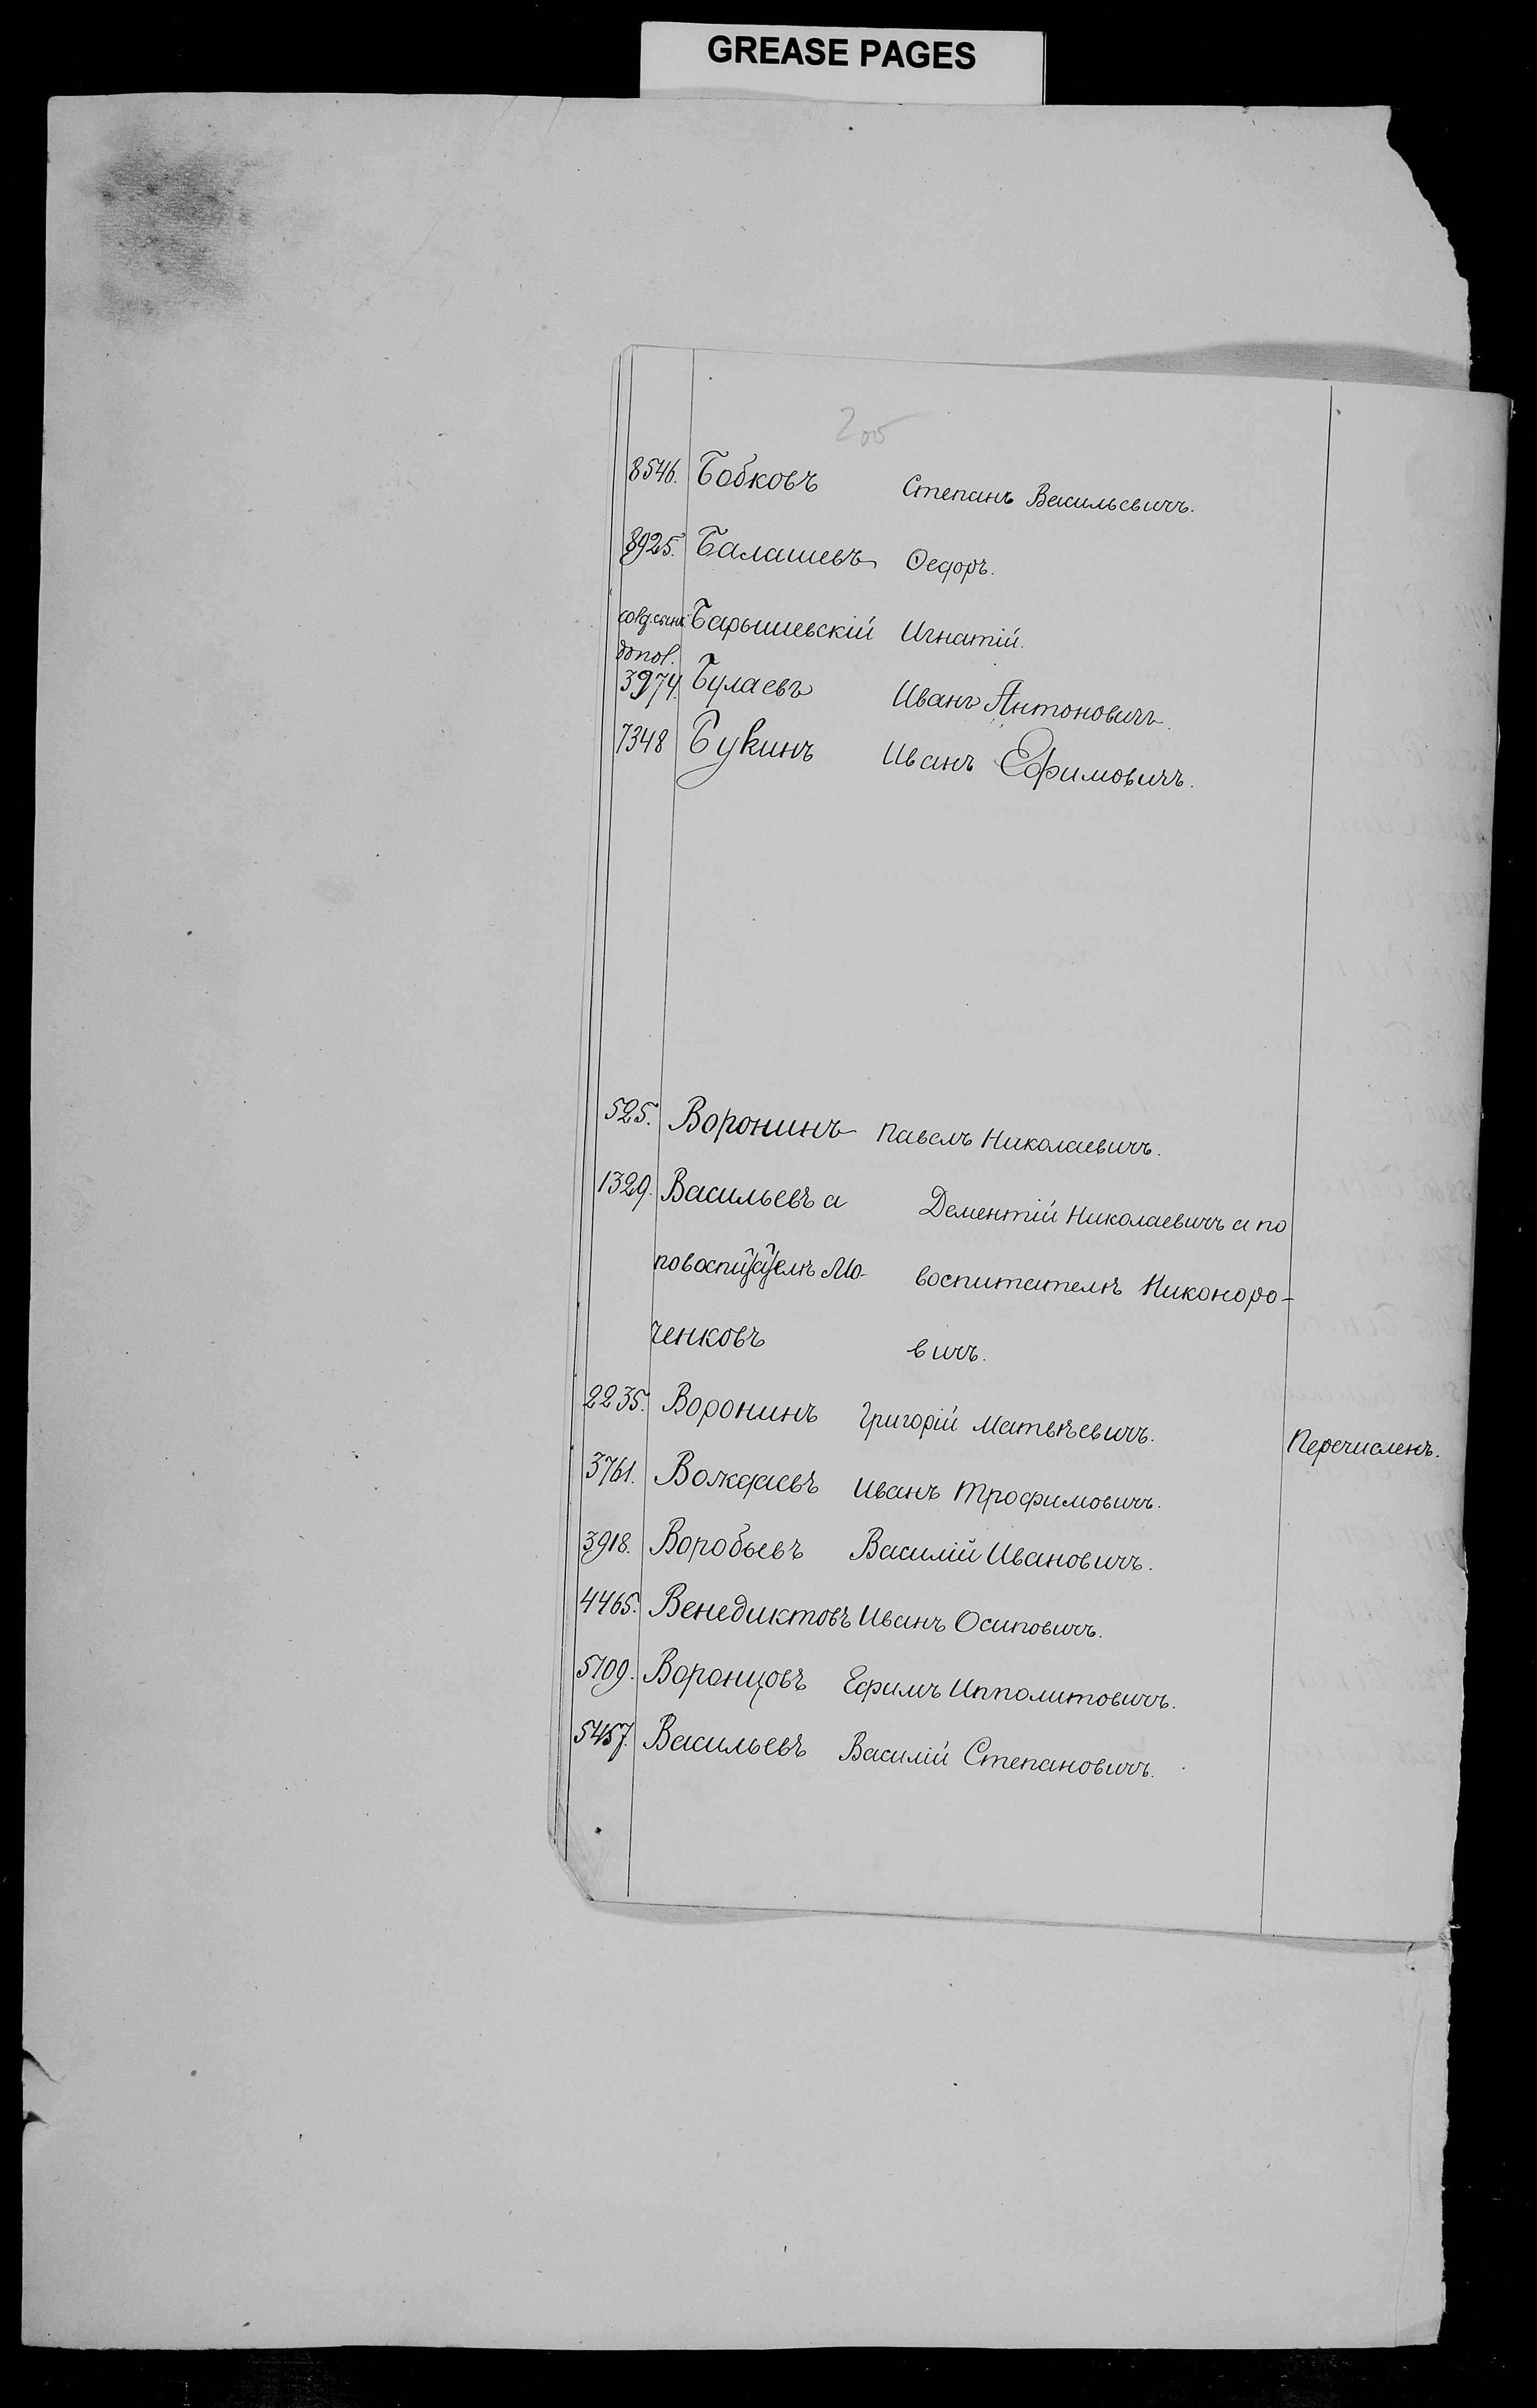 GREASE PAGES
200
8546. Бобковъ Степанъ Васильевичъ.
8925. Балашевъ Ѳедоръ.
Барышевскій Игнатій.
допол.
3974. Булаевъ Иванъ Антоновичъ.
7348 Букинъ Иванъ Ефимовичъ.
525. Воронинъ Павелъ Николаевичъ.
1329. Васильевъ а Дементій Николаевичъ а по
по воспитателѣ Мо- воспитателѣ Никоноро-
ченковъ вичъ.
2235. Воронинъ Григорій Матвѣевичъ. Перечисленъ.
3761. Волкдаевъ Иванъ Трофимовичъ.
3918. Воробьевъ Василій Ивановичъ.
4465. Венедиктовъ Иванъ Осиповичъ.
5709. Воронцовъ Ефимъ Ипполитовичъ.
5457. Васильевъ Василій Степановичъ.